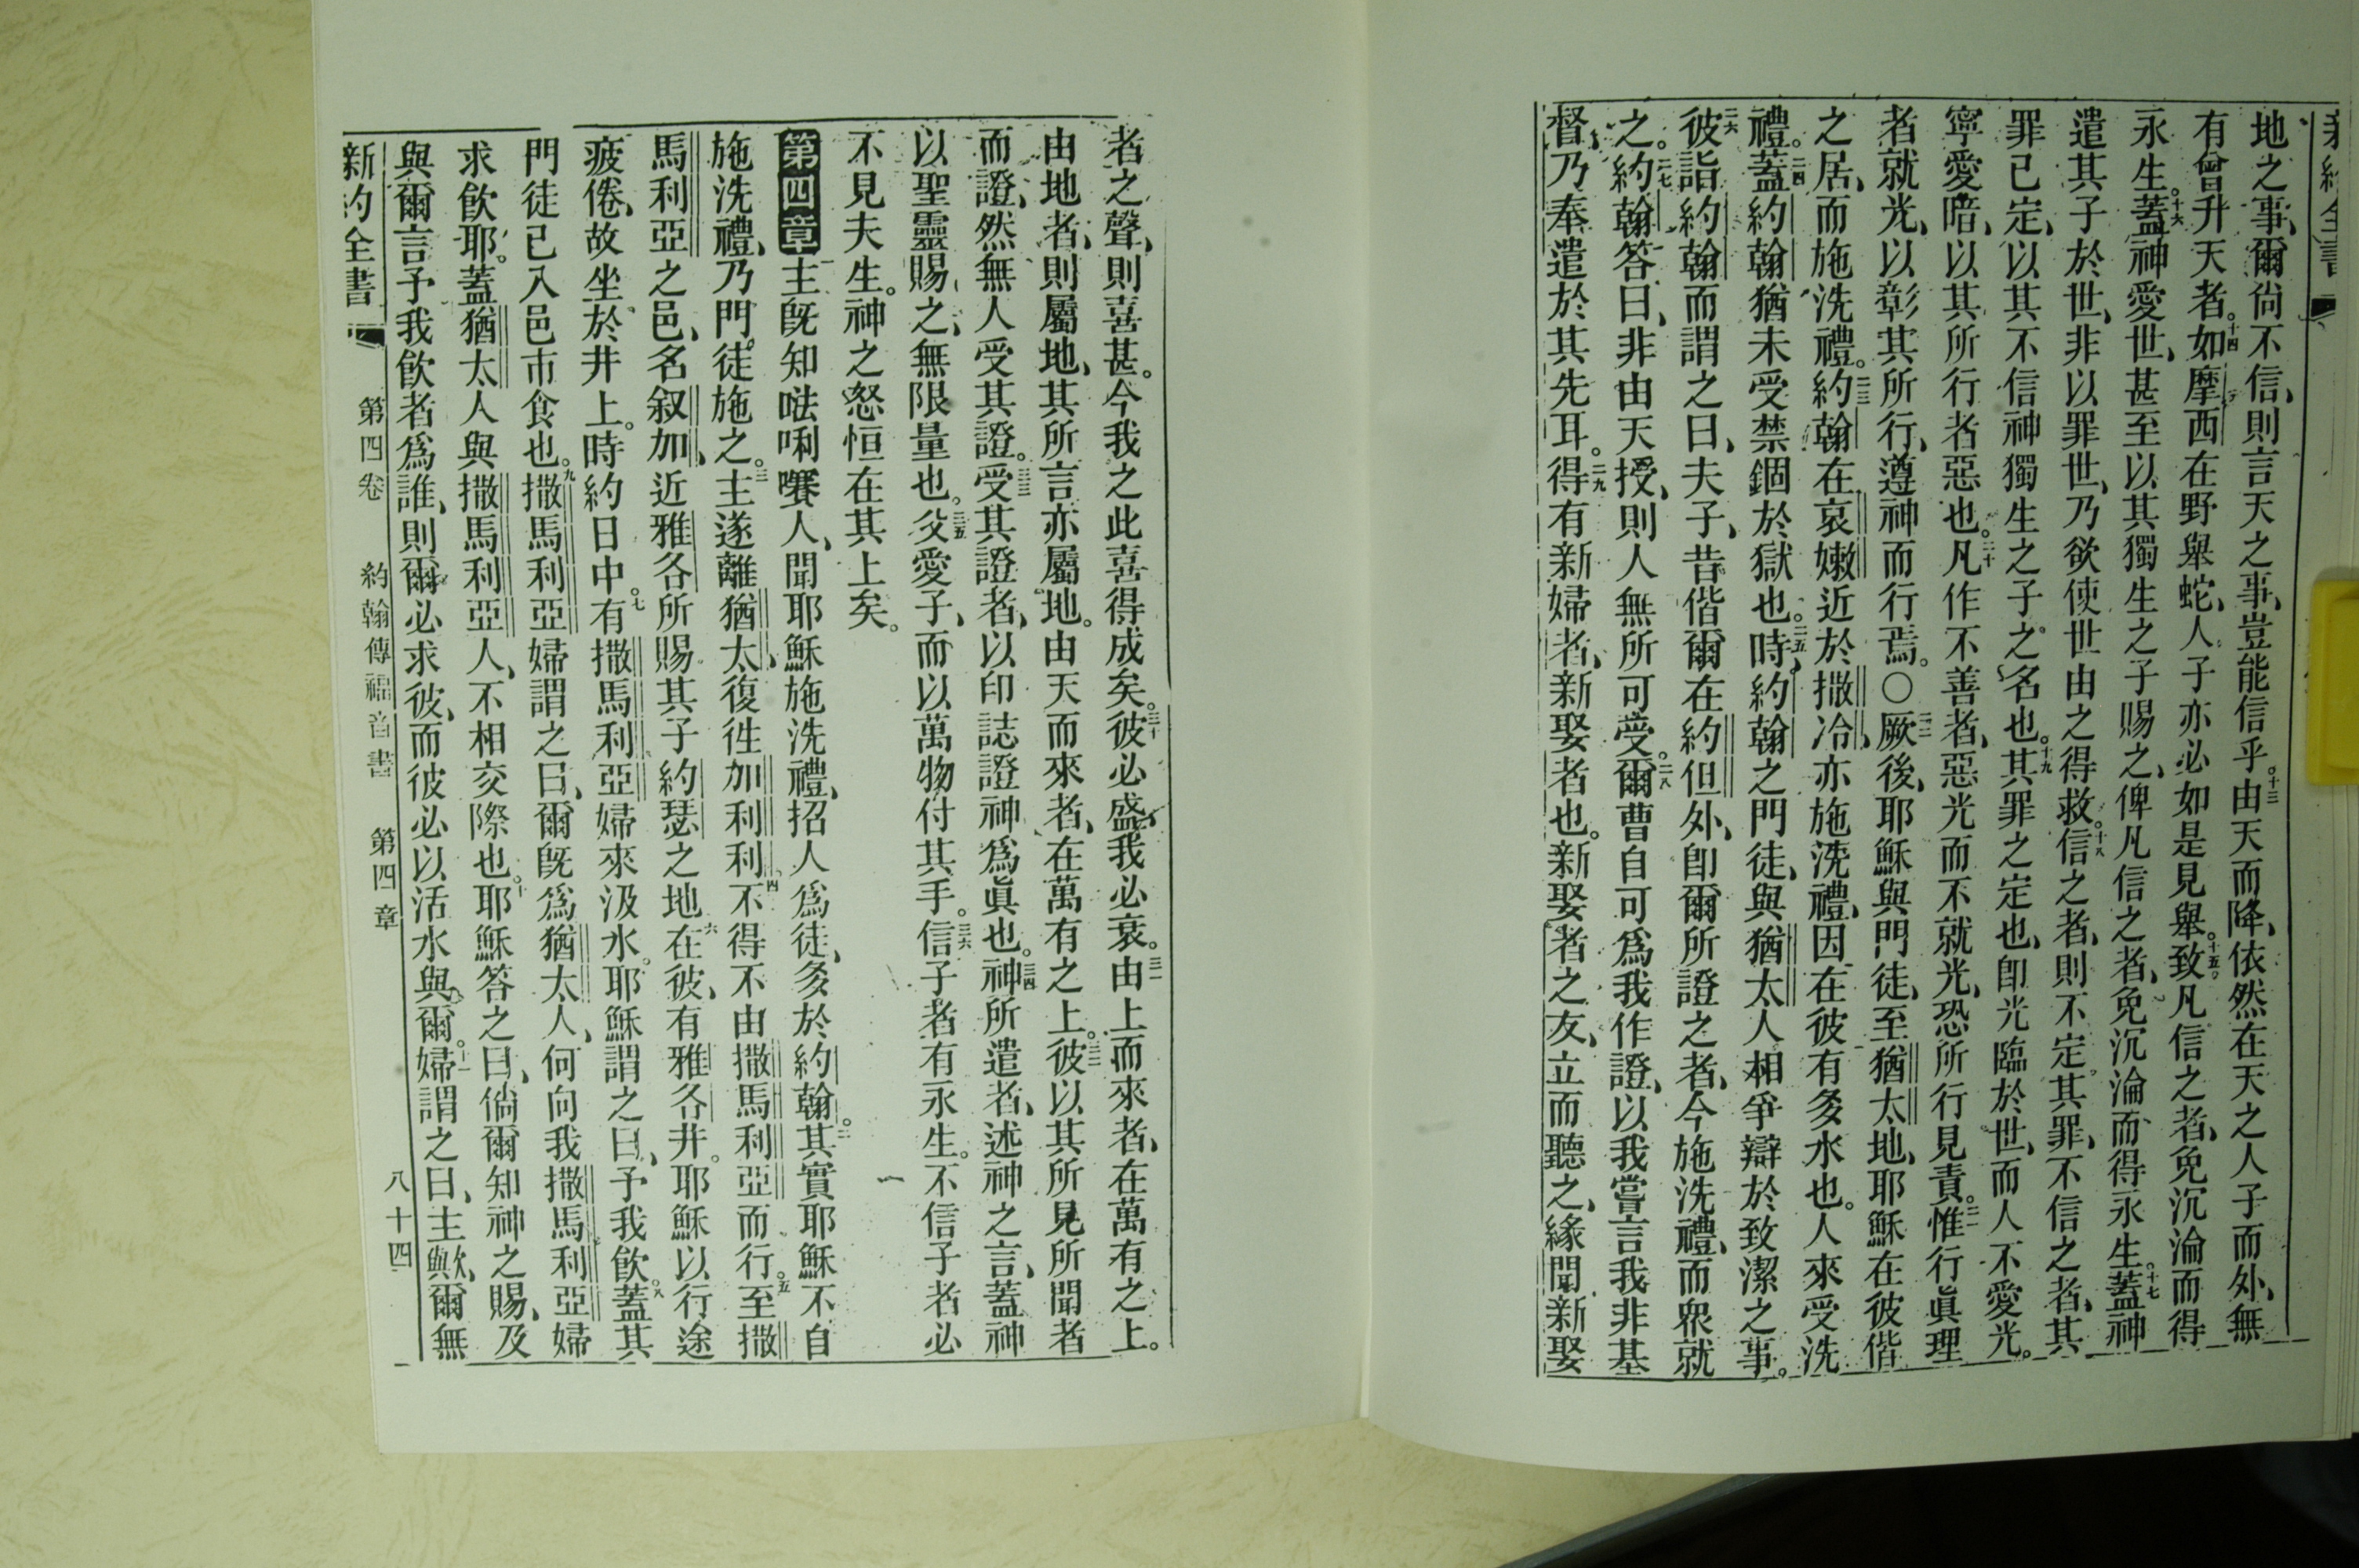 新約全書
地之事、爾尙不信、則言天之事、豈能信乎。十三由天而降、依然在天之人子而外、無
有曾升天者。十四如摩西在野舉蛇、人子亦必如是見舉。十五致凡信之者、免沉淪而得
永生。十六蓋神愛世、甚至以其獨生之子賜之、俾凡信之者、免沉淪而得永生。十七蓋神
遣其子於世、非以罪世、乃欲使世由之得救。十八信之者、則不定其罪、不信之者、其
罪已定、以其不信神獨生之子之名也。十九其罪之定也、卽光臨於世、而人不愛光。
寧愛暗、以其所行者惡也。二十凡作不善者、惡光而不就光、恐所行見責。二一惟行眞理
者就光、以彰其所行、遵神而行焉。〇二二厥後、耶穌與門徒、至猶太地、耶穌在彼偕
之居、而施洗禮。二三約翰在哀嫩近於撒冷、亦施洗禮、因在彼有多水也。人來受洗
禮。二四蓋約翰猶未受禁錮於獄也。二五時、約翰之門徒、與猶太人相爭辯於致潔之事。
二六彼詣約翰而謂之曰、夫子、昔偕爾在約但外、卽爾所證之者、今施洗禮、而衆就
之。二七約翰答曰、非由天授、則人無所可受。二八爾曹自可爲我作證、以我嘗言我非基
督、乃奉遣於其先耳。二九得有新婦者、新娶者也。新娶者之友、立而聽之、緣聞新娶
者之聲、則喜甚。今我之此喜得成矣。三十彼必盛、我必衰。三一由上而來者、在萬有之上。
由地者、則屬地、其所言亦屬地。由天而來者、在萬有之上。三二彼以其所見所聞者
而證、然無人受其證。三三受其證者、以印誌證神爲眞也。三四神所遣者、述神之言、蓋神
以聖靈賜之、無限量也。三五父愛子、而以萬物付其手。三六信子者有永生。不信子者必
不見夫生。神之怒恒在其上矣。
第四章主旣知𠵽唎㘔人、聞耶穌施洗禮、招人爲徒、多於約翰。二其實耶穌不自
施洗禮、乃門徒施之。三主遂離猶太、復徃加利利。四不得不由撒馬利亞而行。五至撒
馬利亞之邑、名叙加、近雅各所賜其子約瑟之地。六在彼、有雅各井。耶穌以行途
疲倦、故坐於井上。時約日中。七有撒馬利亞婦來汲水。耶穌謂之曰、予我飮。八蓋其
門徒已入邑市食也。九撒馬利亞婦謂之曰、爾旣爲猶太人、何向我撒馬利亞婦
求飮耶。蓋猶太人與撒馬利亞人、不相交際也。十耶穌答之曰、倘爾知神之賜、及
與爾言予我飮者爲誰、則爾必求彼、而彼必以活水與爾。十一婦謂之曰、主歟、爾無
新約全書 第四卷 約翰傳福音書 第四章 八十四